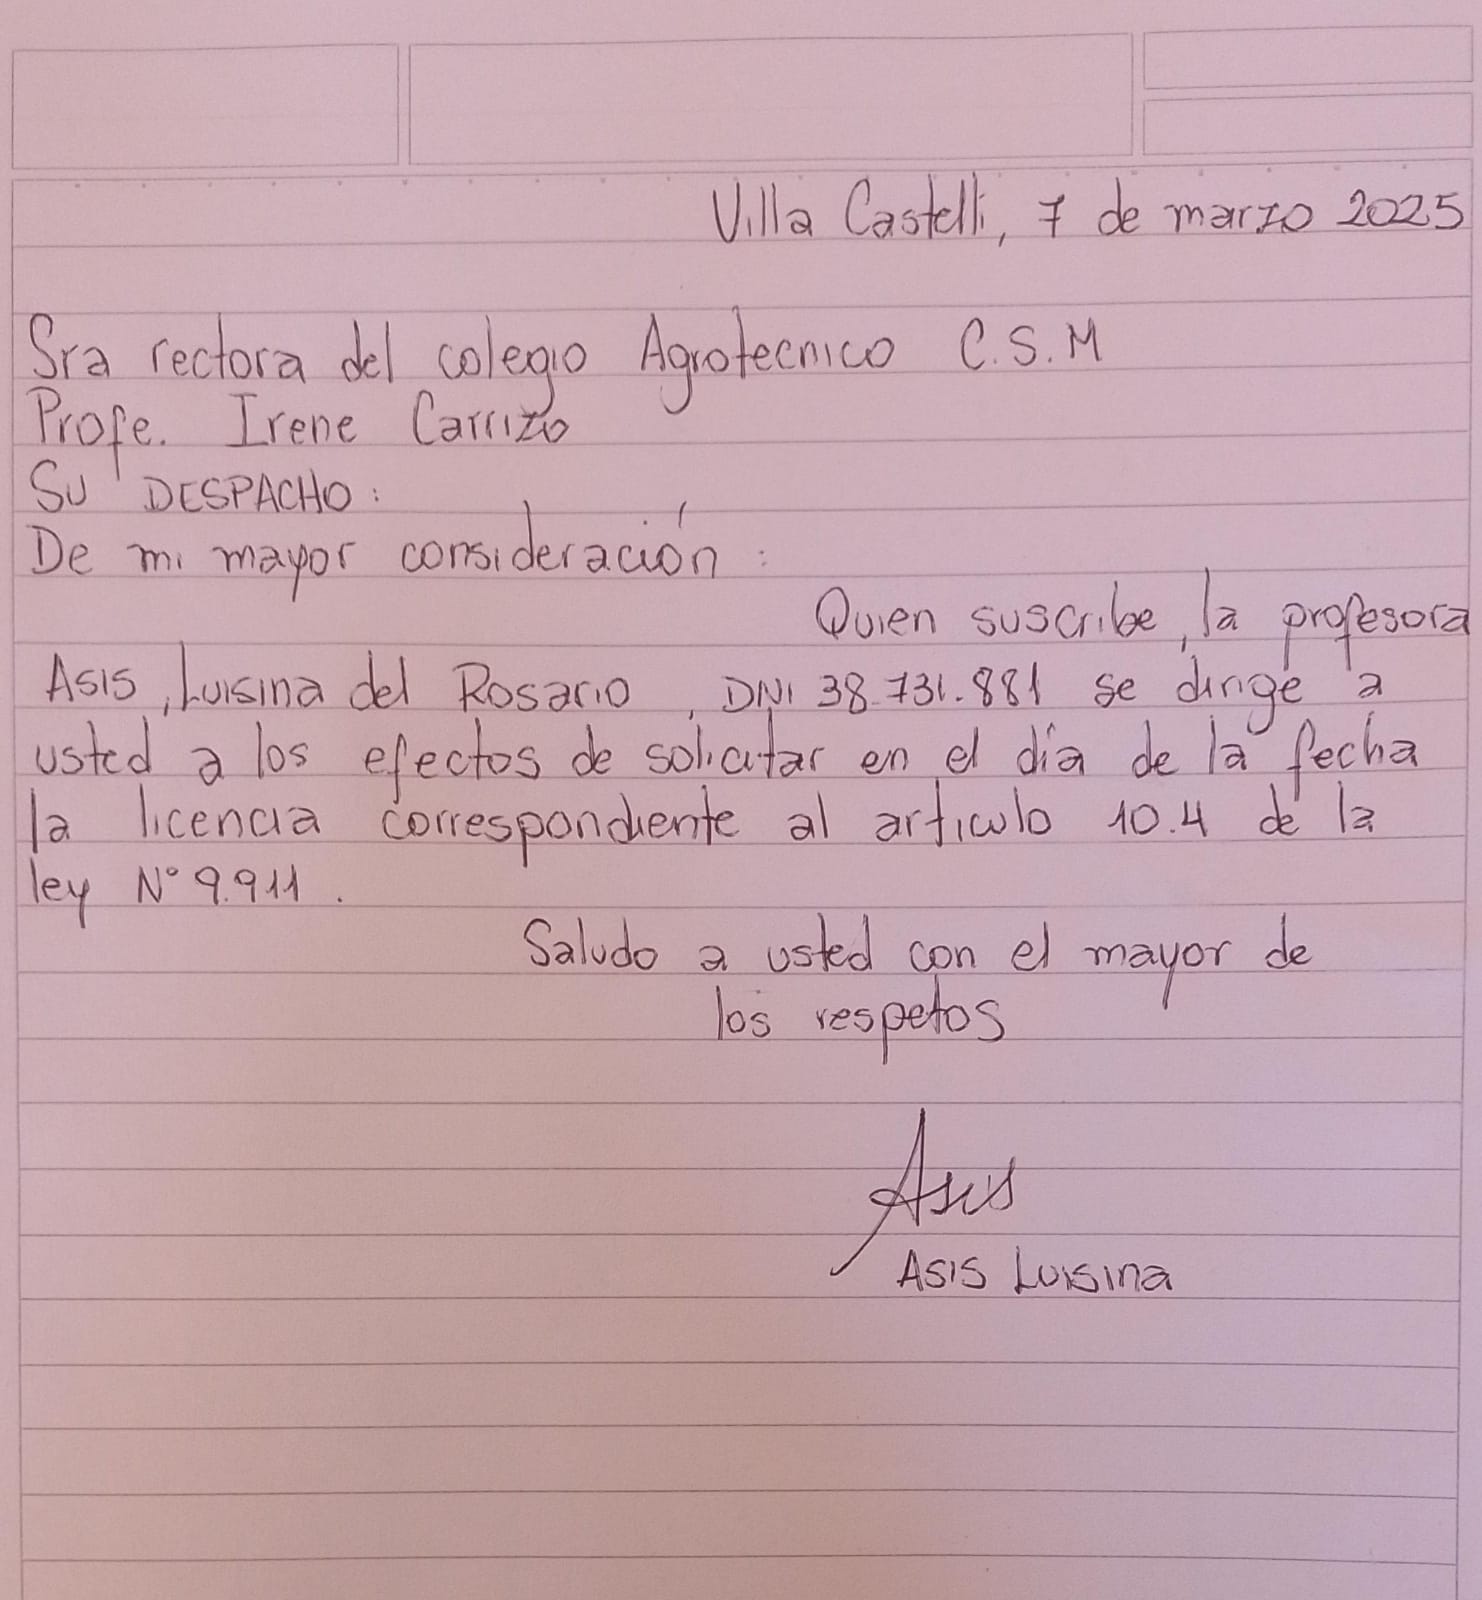 Villa Castelli, 7 de marzo 2025
Sra rectora del colegio Agrotecnico C.S.M
Profe. Irene Carrizo
SU DESPACHO:
De mi mayor consideración:
Quien suscribe, la profesora
Asis, Luisina del Rosario, DNI 38.731.881 se dirige a
usted a los efectos de solicitar en el día de la fecha
la licencia correspondiente al articulo 10.4 de la
ley N° 9.911.
Saludo a usted con el mayor de
los respetos
Asis
Asis Luisina